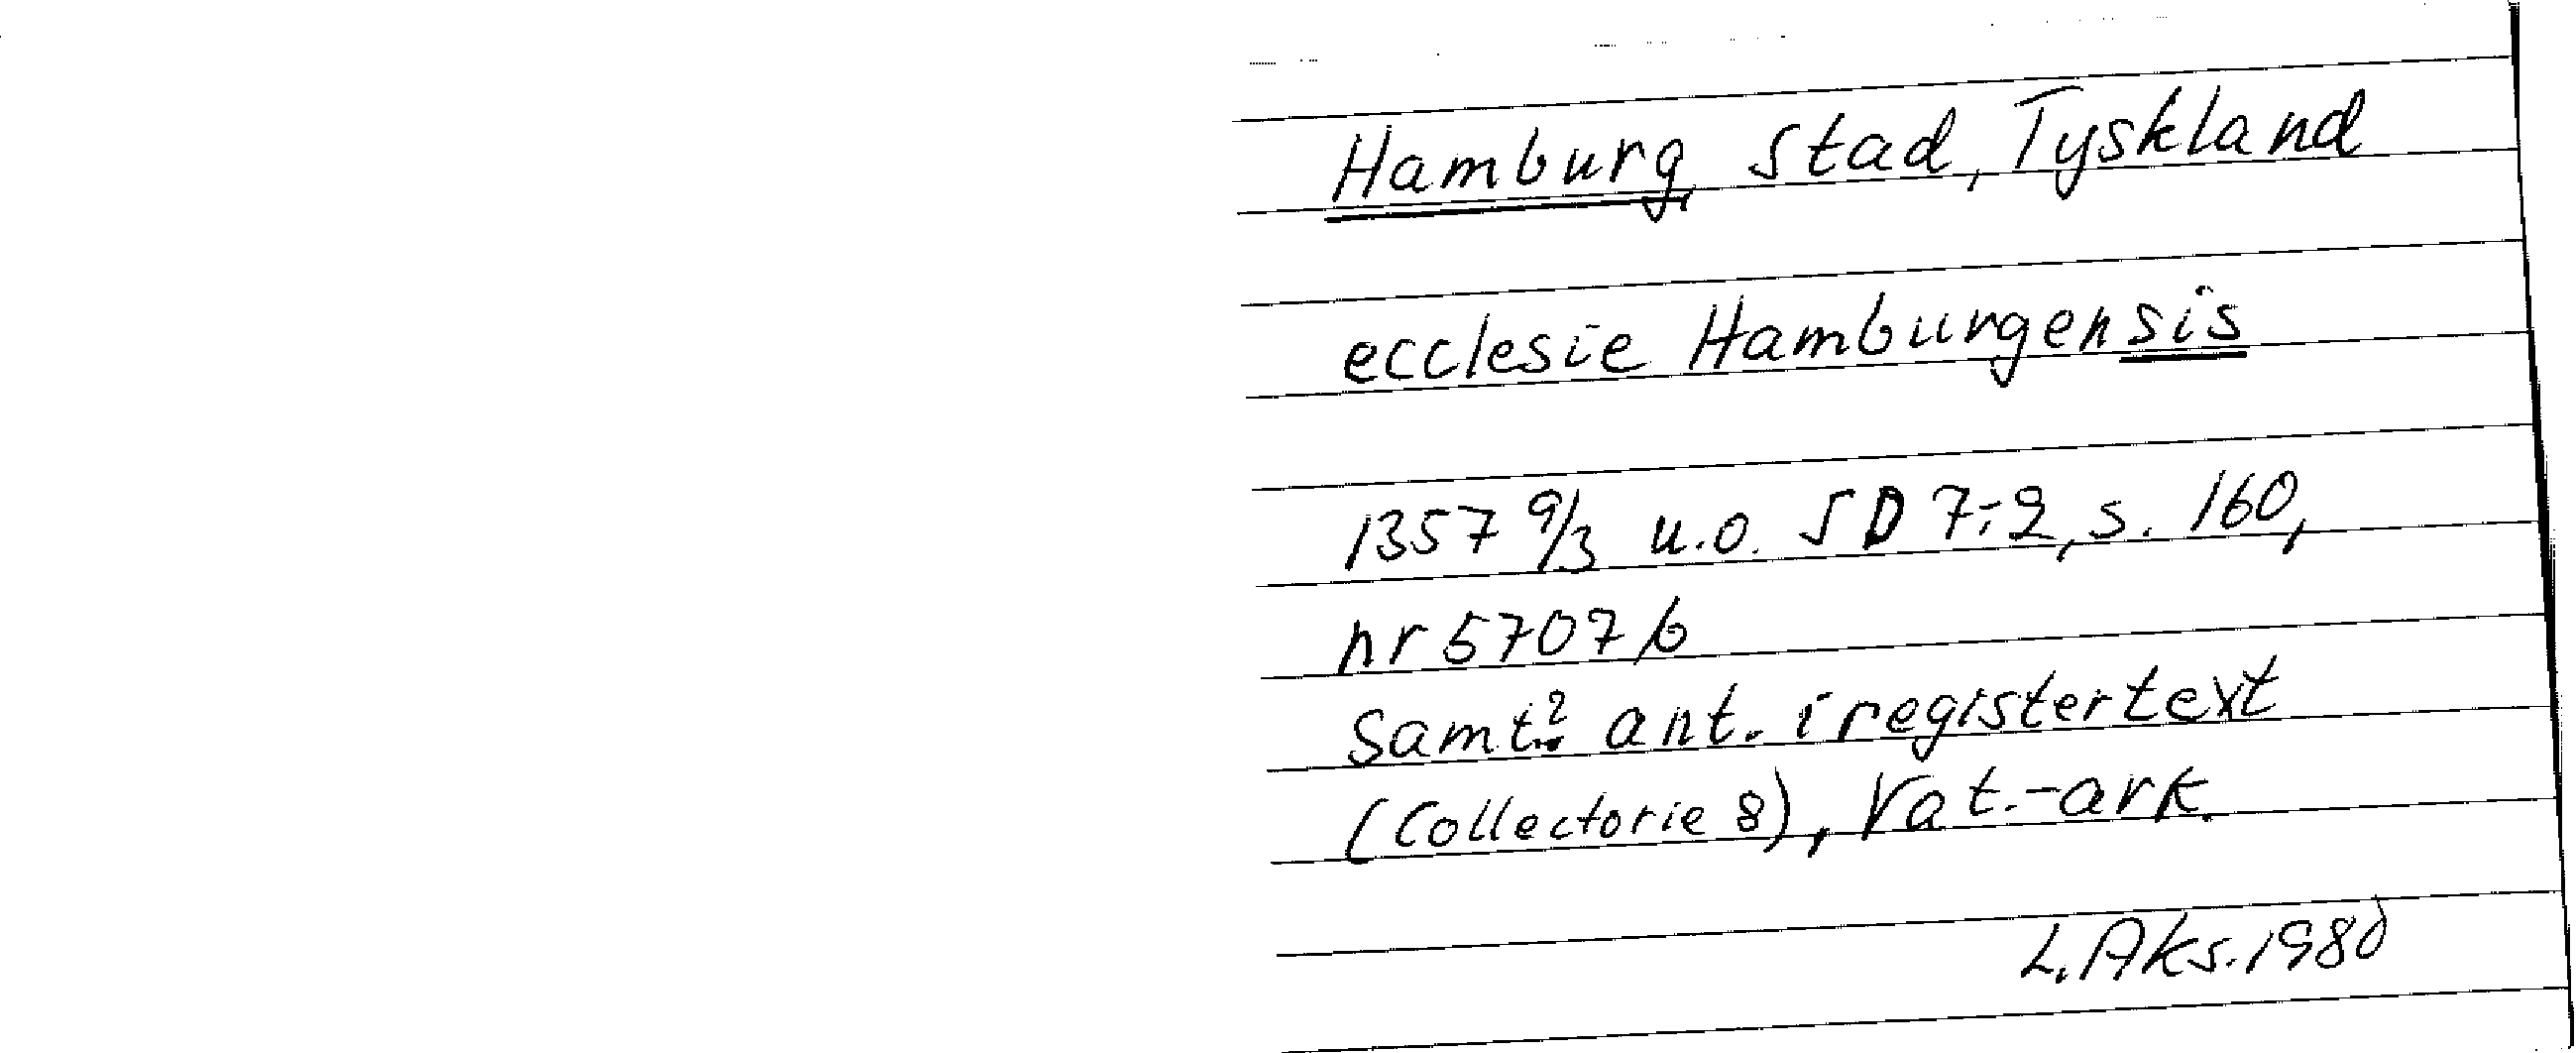 Hamburg, stad, Tyskland
ecclesie Hamburgensis
1357 9/3 u.o. SD 7:2, s. 160,
nr 5707 b
Samt.? ant. i registertext
(Collectorie 8), Vat.-ark.
L. Aks. 1980